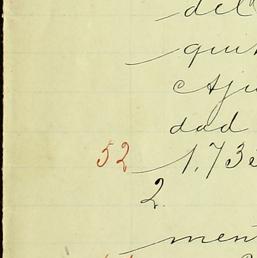 del
qui
Aju
dad
52 1.73
2.
men